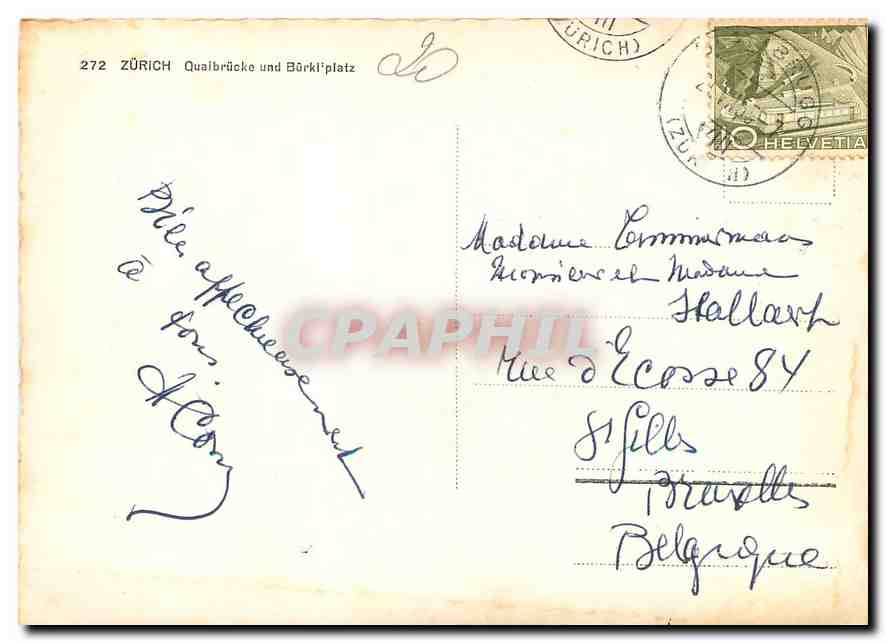 272 ZÜRICH Quaibrücke und Bürkliplatz
20
(ZÜRICH)
(ZÜRICH)
10 HELVETIA
Bien affectueusement
à
tous.
Madame Timmermans
Monsieur et Madame
Hallart
Rue d'Ecosse 84
St Gilles
Bruxelles
Belgique
CPAPHIL